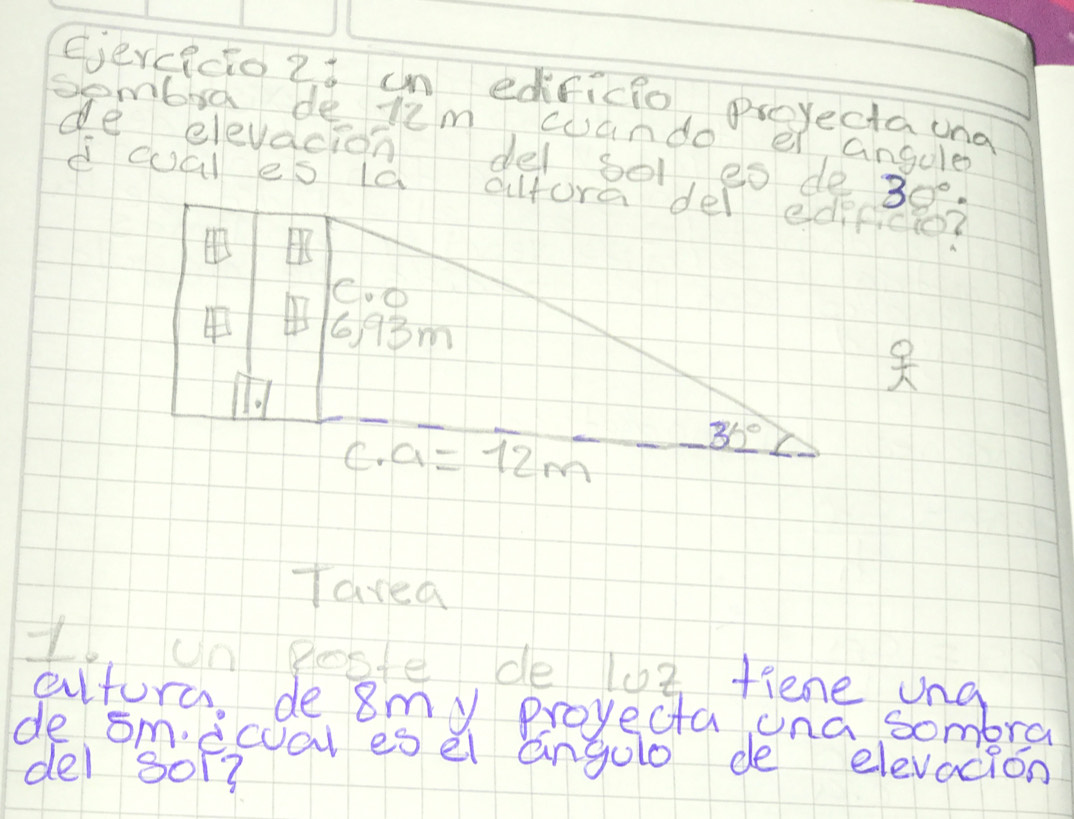 Ejercicio 2: un edificio proyecta una
sombra de 12m cuando el ángulo
de elevación del sol es de 30°.
¿cual es la altura del edificio?
C.O
6,93m
30°
C.a= 12m
Tarea
1. un poste de luz tiene una
altura de 8m y proyecta una sombra
de 5m. ¿cual es el ángulo de elevación
del sol?